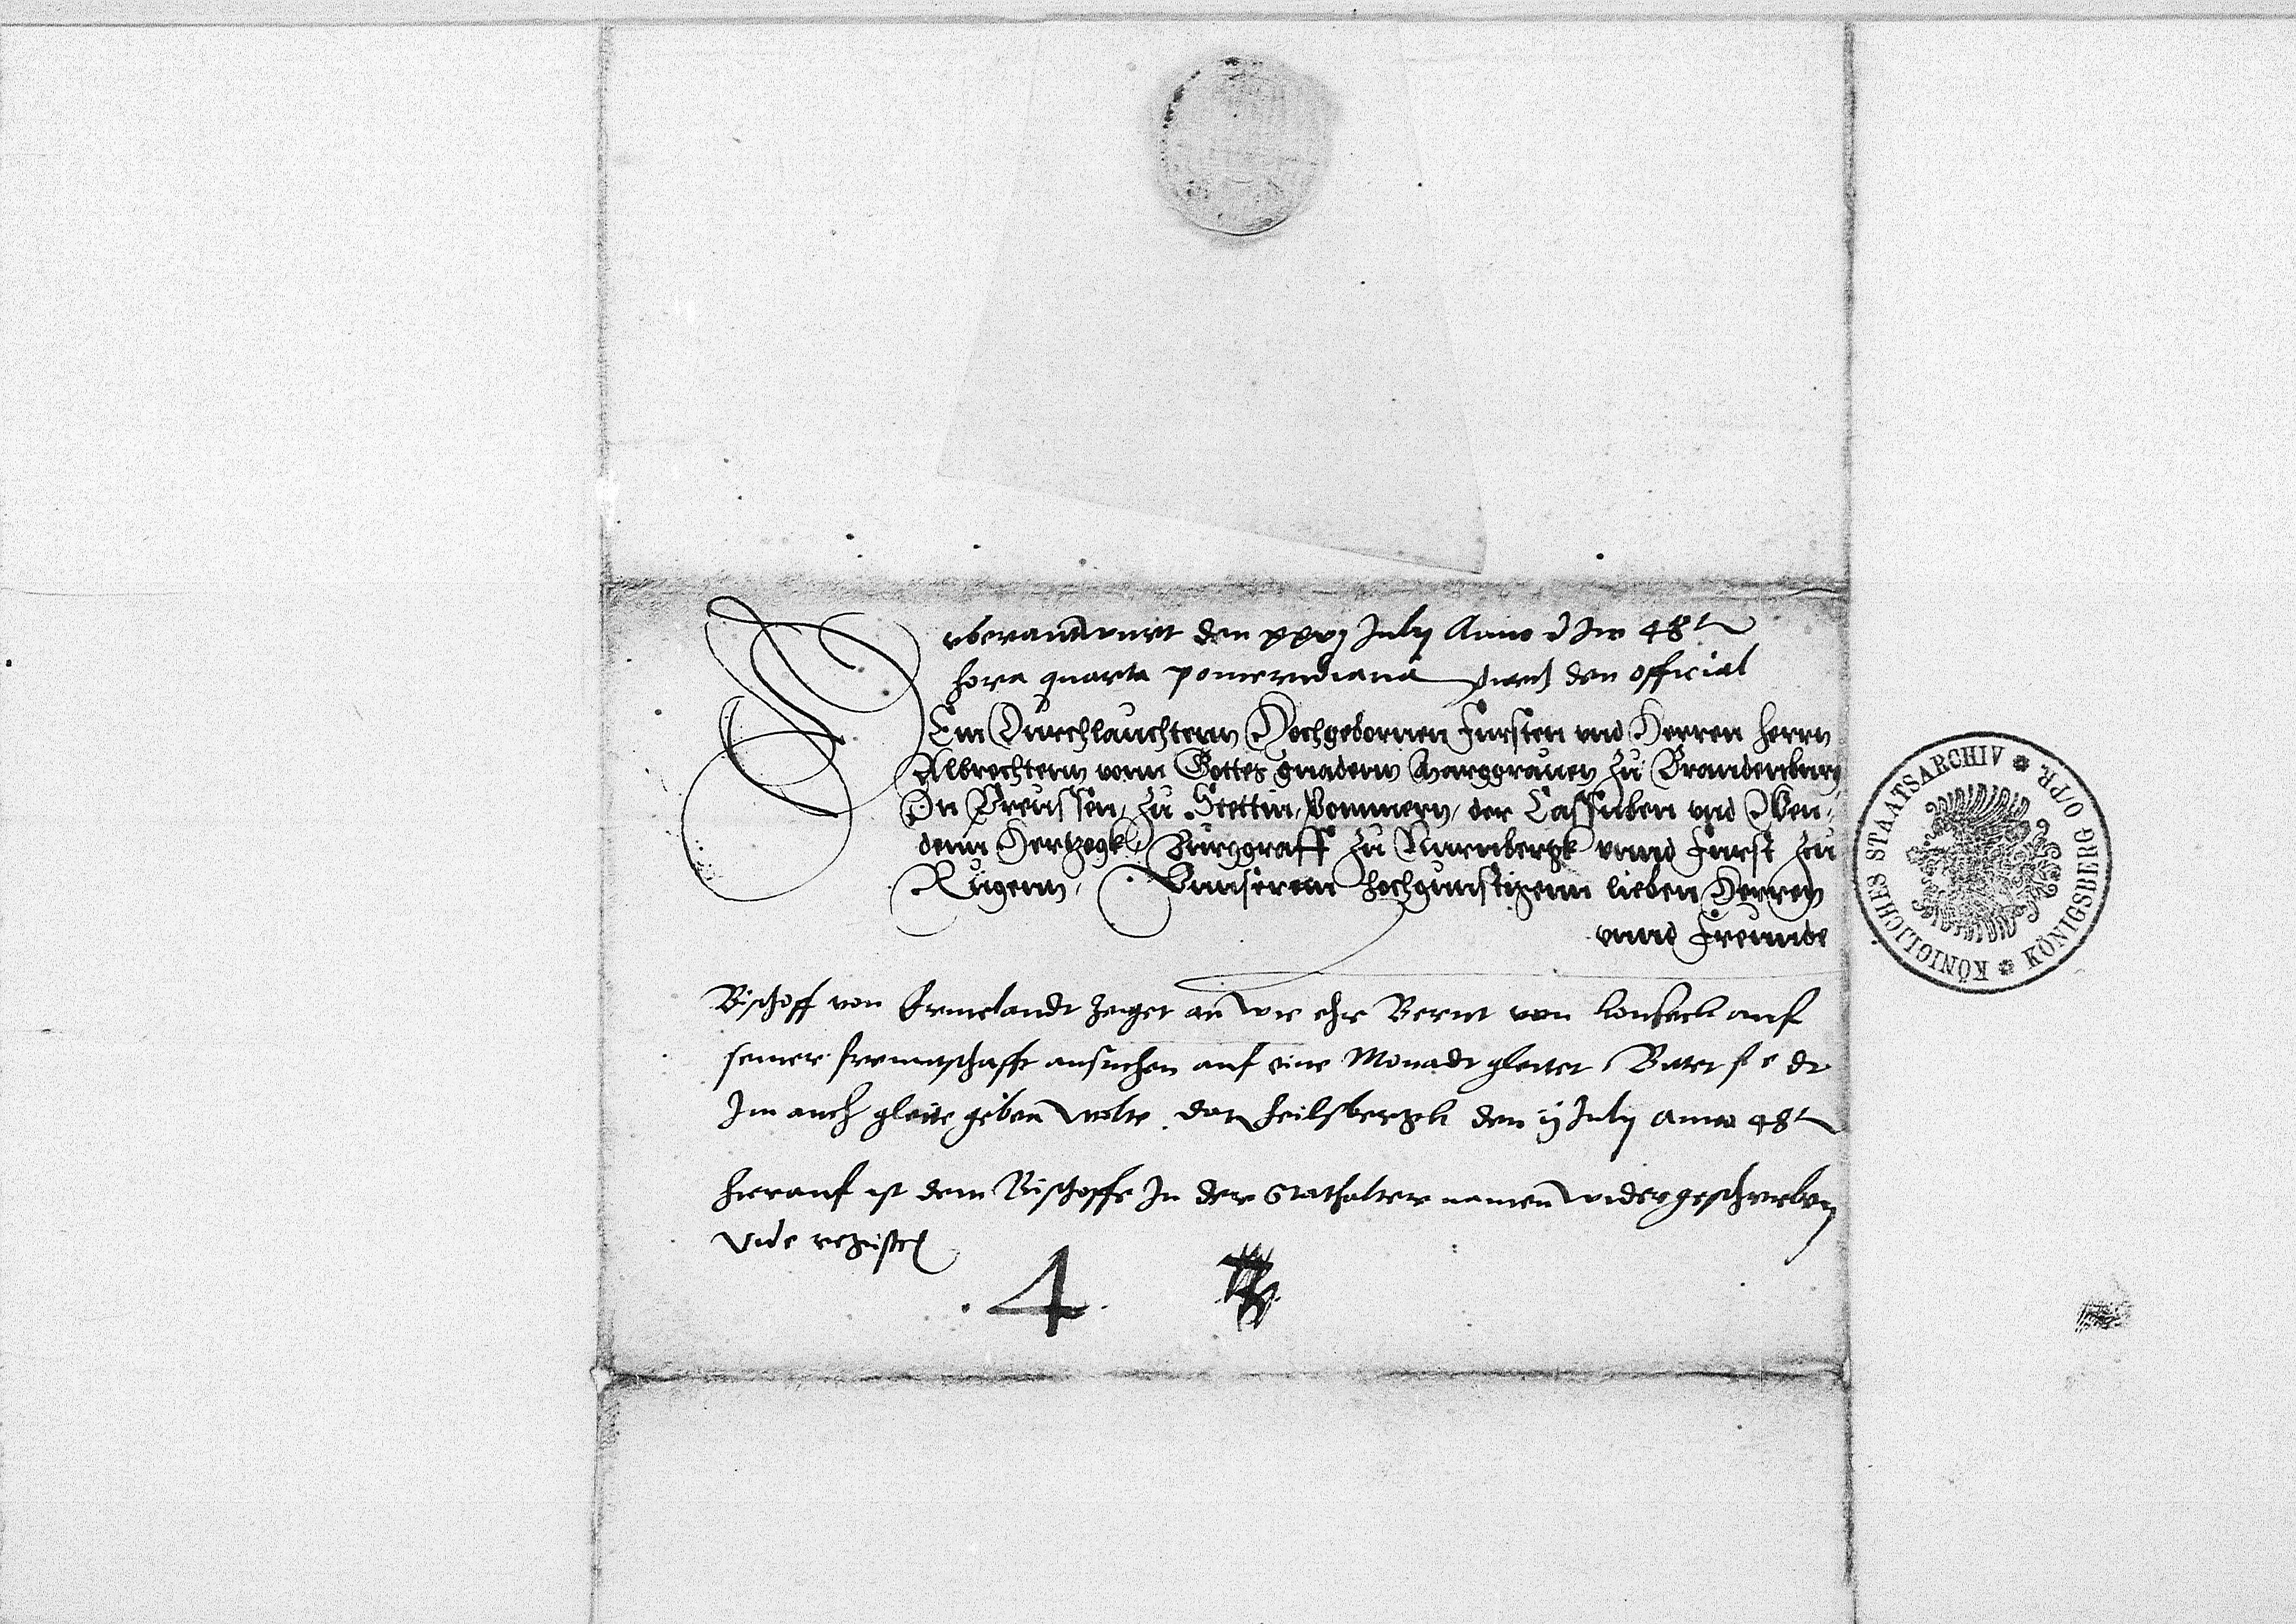 vberantwurt den xxvj July Anno d Im 48 t
hora quarta pomeridiana durch den official
Dem Durchlauchtenn Hochgebornen Fursten vnd Herren herrn
Albrechtenn vonn Gottes gnadenn Marggrauen zu Brandenburg
In Preussen, zu Stettin, Pommern, der Cassuben vnd Wen-
denn Hertzogk, Burggraff zu Nurnbergk vnnd Furst zu
Rugenn, Vnnserem hochgunstigenn lieben Herren
vnnd Freunde
Bischoff von Ermelandt zeiget an wie ehr Bernt von auf
seiner freuntschafft ansuchen auf eine Monadt gleitet Bittet f e dt
Im auch gleite geben wolte. dat heilsbergk den ij July anno 48 t
hierauf ist dem Bischoffe In der Stathalter namen widergeschrieben
vide regist
4
KÖNIGLICHES STAATSARCHIV * KÖNIGSBERG O/PR. *